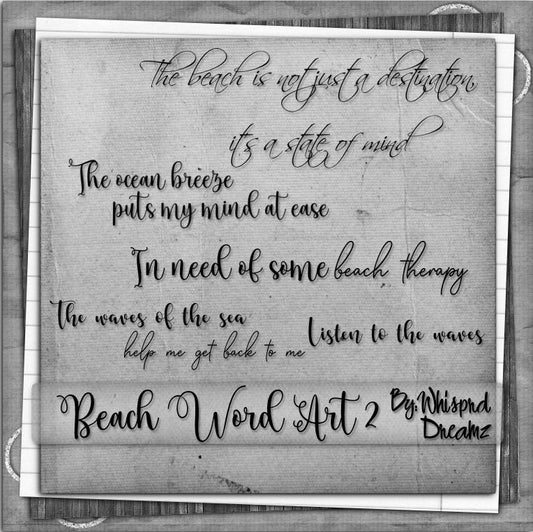 The beach is not just a destination,
it's a state of mind
The ocean breeze
puts my mind at ease
In need of some beach therapy
The waves of the sea
help me get back to me
Listen to the waves
Beach Word Art 2
By: Whisprd
Dreamz